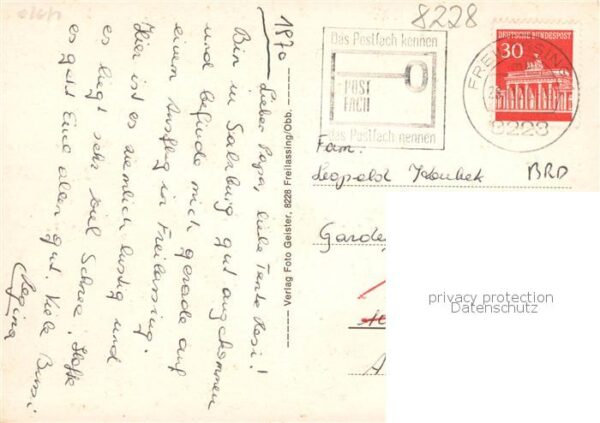 8228
1970
Lieber Papa, liebe Tante Resi!
Bin in Salzburg gut angekommen
und befinde mich gerade auf
einem Ausflug in Freilassing.
Hier ist es ziemlich lustig und
es liegt sehr viel Schnee. Hoffe
es geht Euch allen gut. Viele Bussi
Regina
Verlag Foto Geister, 8228 Freilassing/Obb.
Das Postfach kennen
POST
FACH
das Postfach nennen
DEUTSCHE BUNDESPOST
30
8228
Fam.
Leopold BRD
privacy protection
Datenschutz